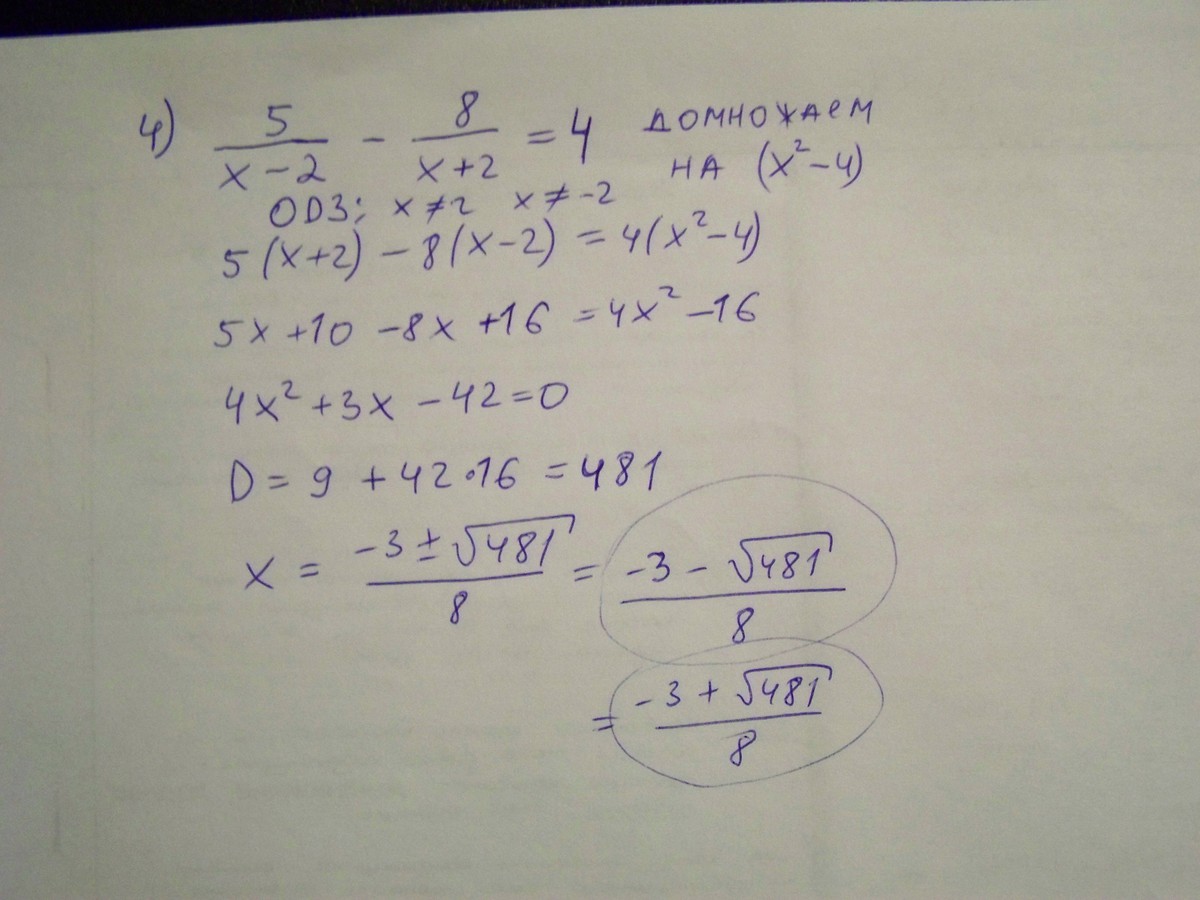 4) 5/(x-2) - 8/(x+2) = 4 домножаем
на (x²-4)
ОДЗ: x≠2 x≠-2
5(x+2) - 8(x-2) = 4(x²-4)
5x+10 -8x +16 = 4x² -16
4x² +3x -42=0
D = 9 +42·16 = 481
x = (-3±√481)/8 = (-3-√481)/8
= (-3+√481)/8